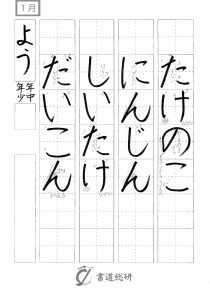 1月
たけのこ
にんじん
しいたけ
だいこん
よう
年中
年少
書道総研